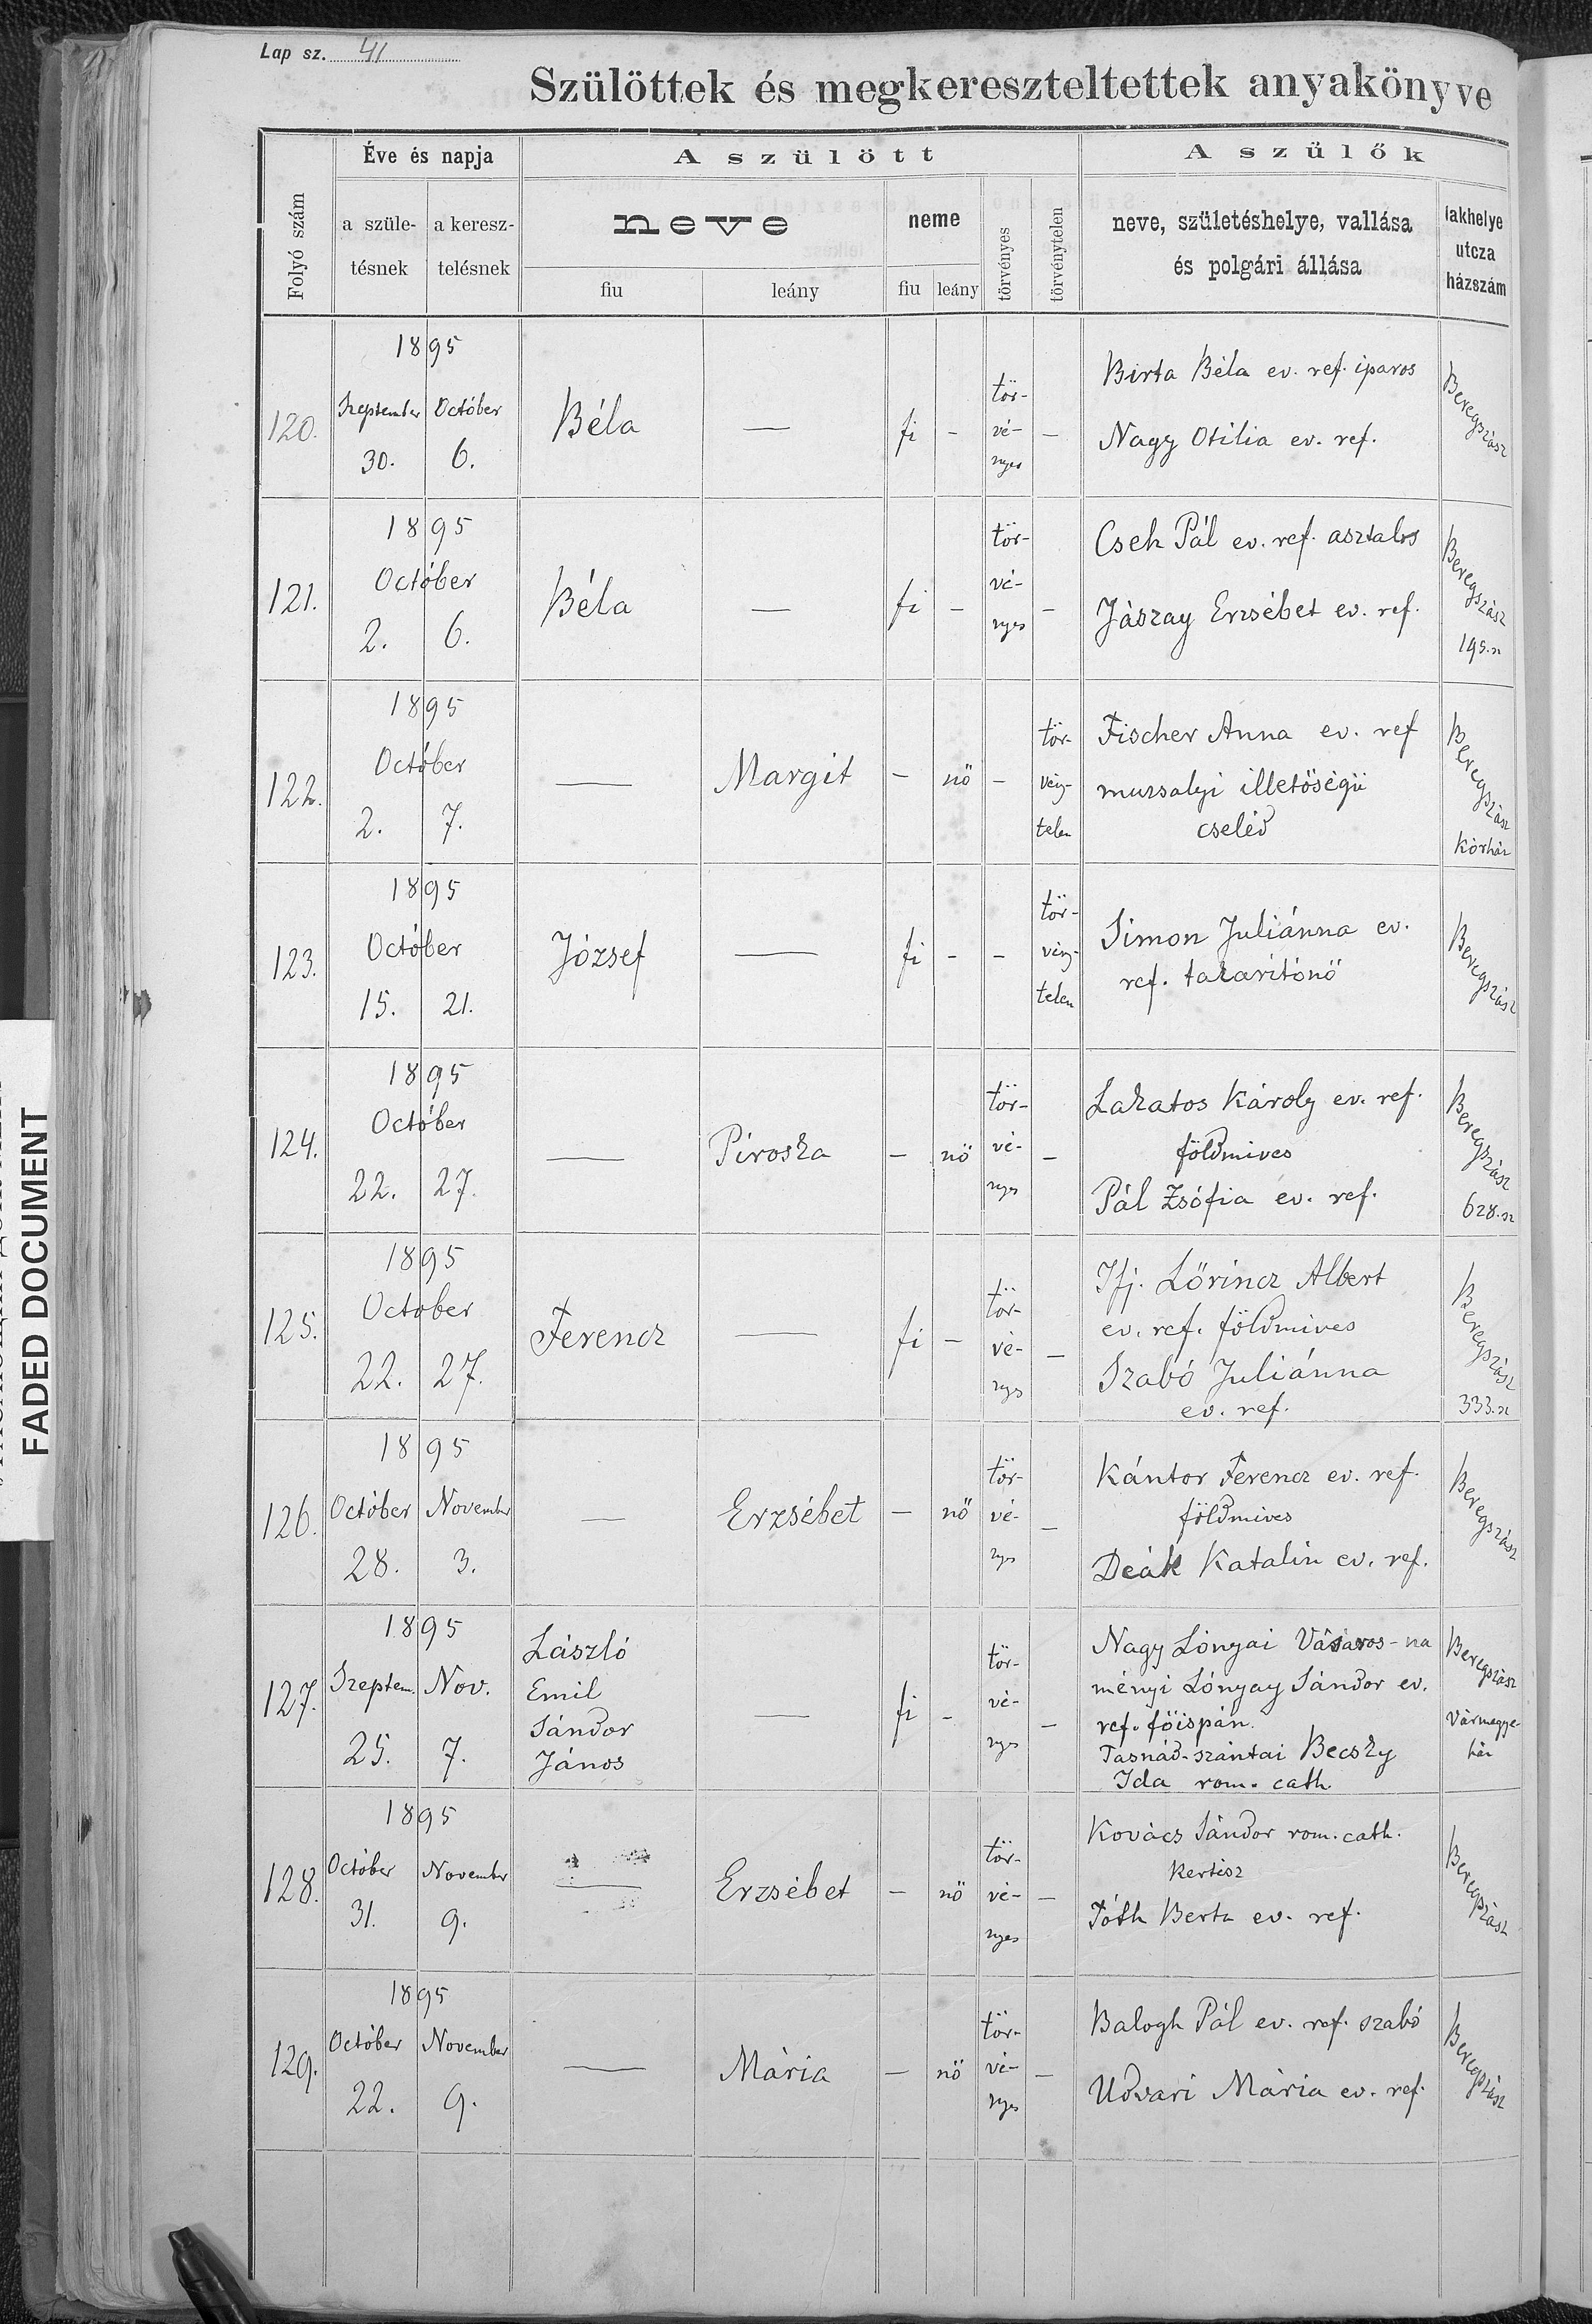 Lap sz. 41
Szülöttek és megkereszteltettek anyakönyve
Folyó szám
Éve és napja
a szüle-
tésnek
a keresz-
telésnek
A szülött
neve
fiu
leány
neme
fiu
leány
törvényes
törvénytelen
A szülők
neve, születéshelye, vallása
és polgári állása
lakhelye
utcza
házszám
120.
1895
Szeptember October
30. 6.
Béla
—
fi
-
tör-
vé-
nyes
-
Birta Béla ev. ref. iparos
Nagy Otilia ev. ref.
Beregszász
121.
1895
Octóber
2. 6.
Béla
—
fi
-
tör-
vé-
nyes
-
Cseh Pál ev. ref. asztalos
Jászay Erzsébet ev. ref.
Beregszász
195. sz
122.
1895
Octóber
2. 7.
—
Margit
-
nö
-
tör-
vény-
telen
Fischer Anna ev. ref
muzsalyi illetőségü
cseléd
Beregszász
Kórház
123.
1895
Octóber
15. 21.
József
—
fi
-
-
tör-
vény-
telen
Simon Juliánna ev.
ref. takarítónö
Beregszász
124.
1895
Octóber
22. 27.
—
Piroska
-
nö
tör-
vé-
nyes
-
Lakatos Károly ev. ref.
földmives
Pál Zsófia ev. ref.
Beregszász
628. sz
125.
1895
October
22. 27.
Ferencz
—
fi
-
tör-
vé-
nyes
-
Ifj. Lőrincz Albert
ev. ref. földmives
Szabó Juliánna
ev. ref.
Beregszász
333. sz
126.
1895
Octóber November
28. 3.
—
Erzsébet
-
nö
tör-
vé-
nyes
-
Kántor Ferencz ev. ref.
földmives
Deák Katalin ev. ref.
Beregszász
127.
1895
Szeptem. Nov.
25. 7.
László
Emil
Sándor
János
—
fi
-
tör-
vé-
nyes
-
Nagy Lónyai Vásáros-na
ményi Lónyay Sándor ev.
ref. főispán.
Tasnád-szántai Becsky
Ida rom. cath.
Beregszász
Vármegye-
ház
128.
1895
Octóber November
31. 9.
—
Erzsébet
-
nö
tör-
vé-
nyes
-
Kovács Sándor rom. cath.
Kertész
Tóth Berta ev. ref.
Beregszász
129.
1895
Octóber November
22. 9.
—
Mária
-
nö
tör-
vé-
nyes
-
Balogh Pál ev. ref. szabó
Udvari Mária ev. ref.
Beregszász
FADED DOCUMENT